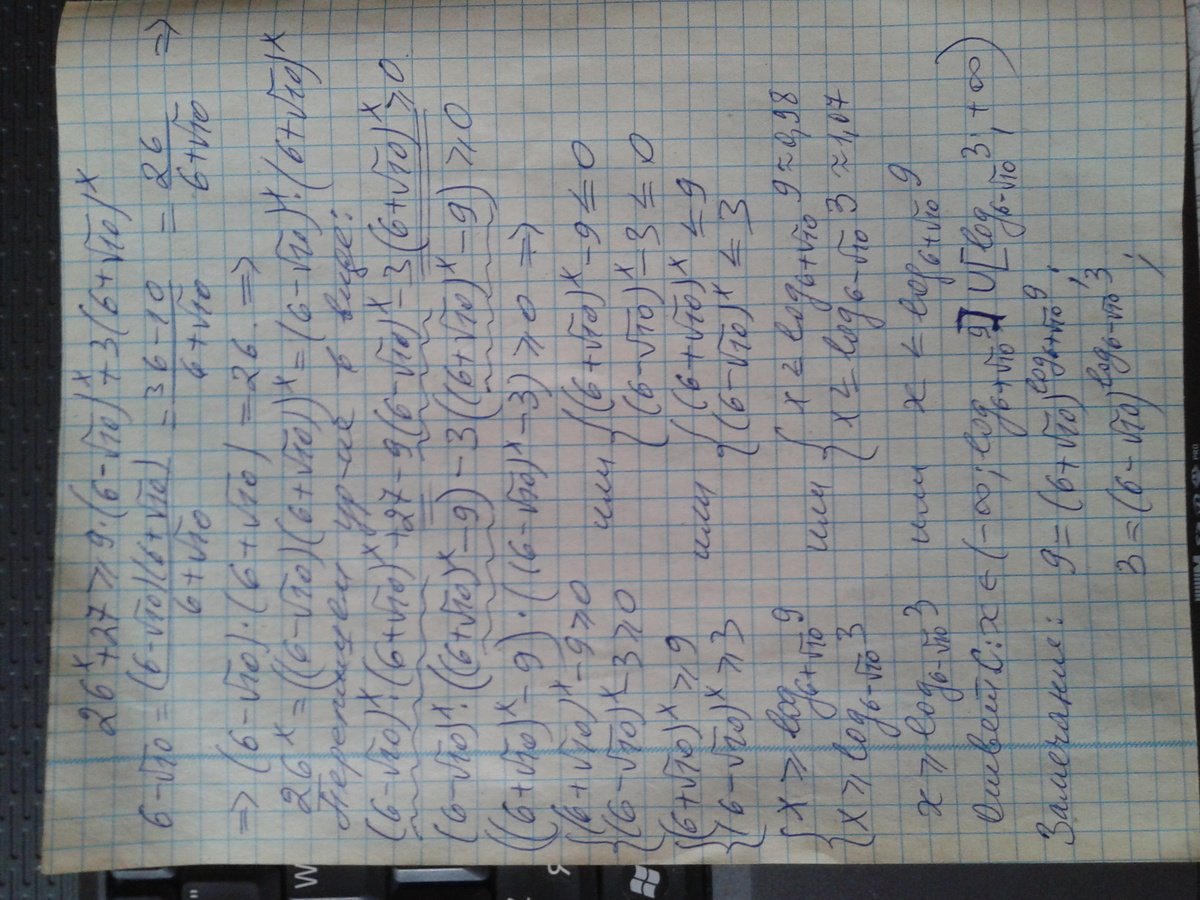 26ˣ+27 ≥ 9·(6-√10)ˣ+3(6+√10)ˣ
6-√10 = (6-√10)(6+√10)/(6+√10) = (36-10)/(6+√10) = 26/(6+√10) =>
=> (6-√10)·(6+√10) = 26. =>
26ˣ = ((6-√10)(6+√10))ˣ = (6-√10)ˣ·(6+√10)ˣ
Перепишем ур-ие в виде:
(6-√10)ˣ·(6+√10)ˣ+27-9(6-√10)ˣ-3(6+√10)ˣ ≥ 0.
(6-√10)ˣ·((6+√10)ˣ-9)-3((6+√10)ˣ-9) ≥ 0
((6+√10)ˣ-9)·((6-√10)ˣ-3) ≥ 0 =>
{(6+√10)ˣ-9 ≥ 0 или {(6+√10)ˣ-9 ≤ 0
{(6-√10)ˣ-3 ≥ 0 {(6-√10)ˣ-3 ≤ 0
{(6+√10)ˣ ≥ 9 или {(6+√10)ˣ ≤ 9
{(6-√10)ˣ ≥ 3 {(6-√10)ˣ ≤ 3
{x ≥ log₆₊√₁₀ 9 или {x ≤ log₆₊√₁₀ 9 ≈ 0,98
{x ≥ log₆₋√₁₀ 3 {x ≤ log₆₋√₁₀ 3 ≈ 1,07
x ≥ log₆₋√₁₀ 3 или x ≤ log₆₊√₁₀ 9
Ответ: x ∈ (-∞; log₆₊√₁₀ 9] ∪ [log₆₋√₁₀ 3; +∞)
Замечание: 9 = (6+√10)^(log₆₊√₁₀ 9);
3 = (6-√10)^(log₆₋√₁₀ 3);
W
Я